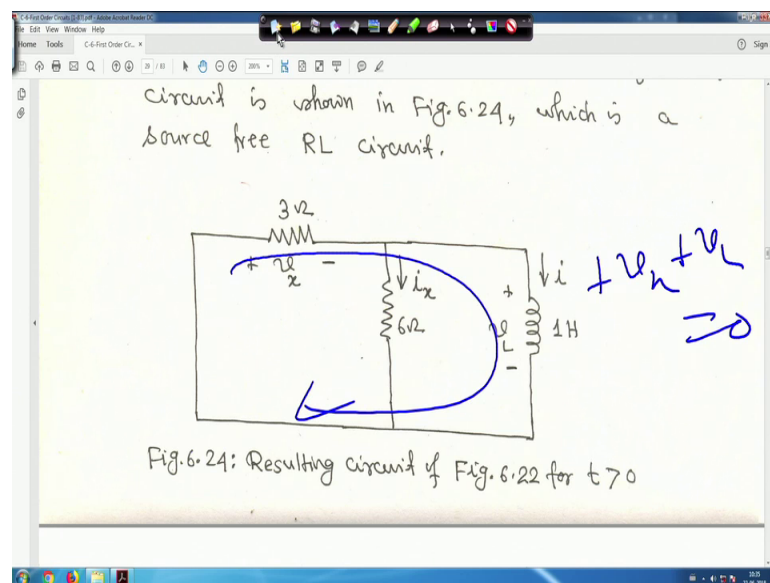 C-6-First Order Circuits (1-83).pdf - Adobe Acrobat Reader DC
File Edit View Window Help
Home Tools C-6-First Order Cir... × Sign
29 / 83 200%
circuit is shown in Fig. 6.24, which is a
source free RL circuit.
3Ω
+ vx −
ix
6Ω
+ vL −
i
1H
+vx +vL
=0
Fig. 6.24: Resulting circuit of Fig. 6.22 for t>0
10:35